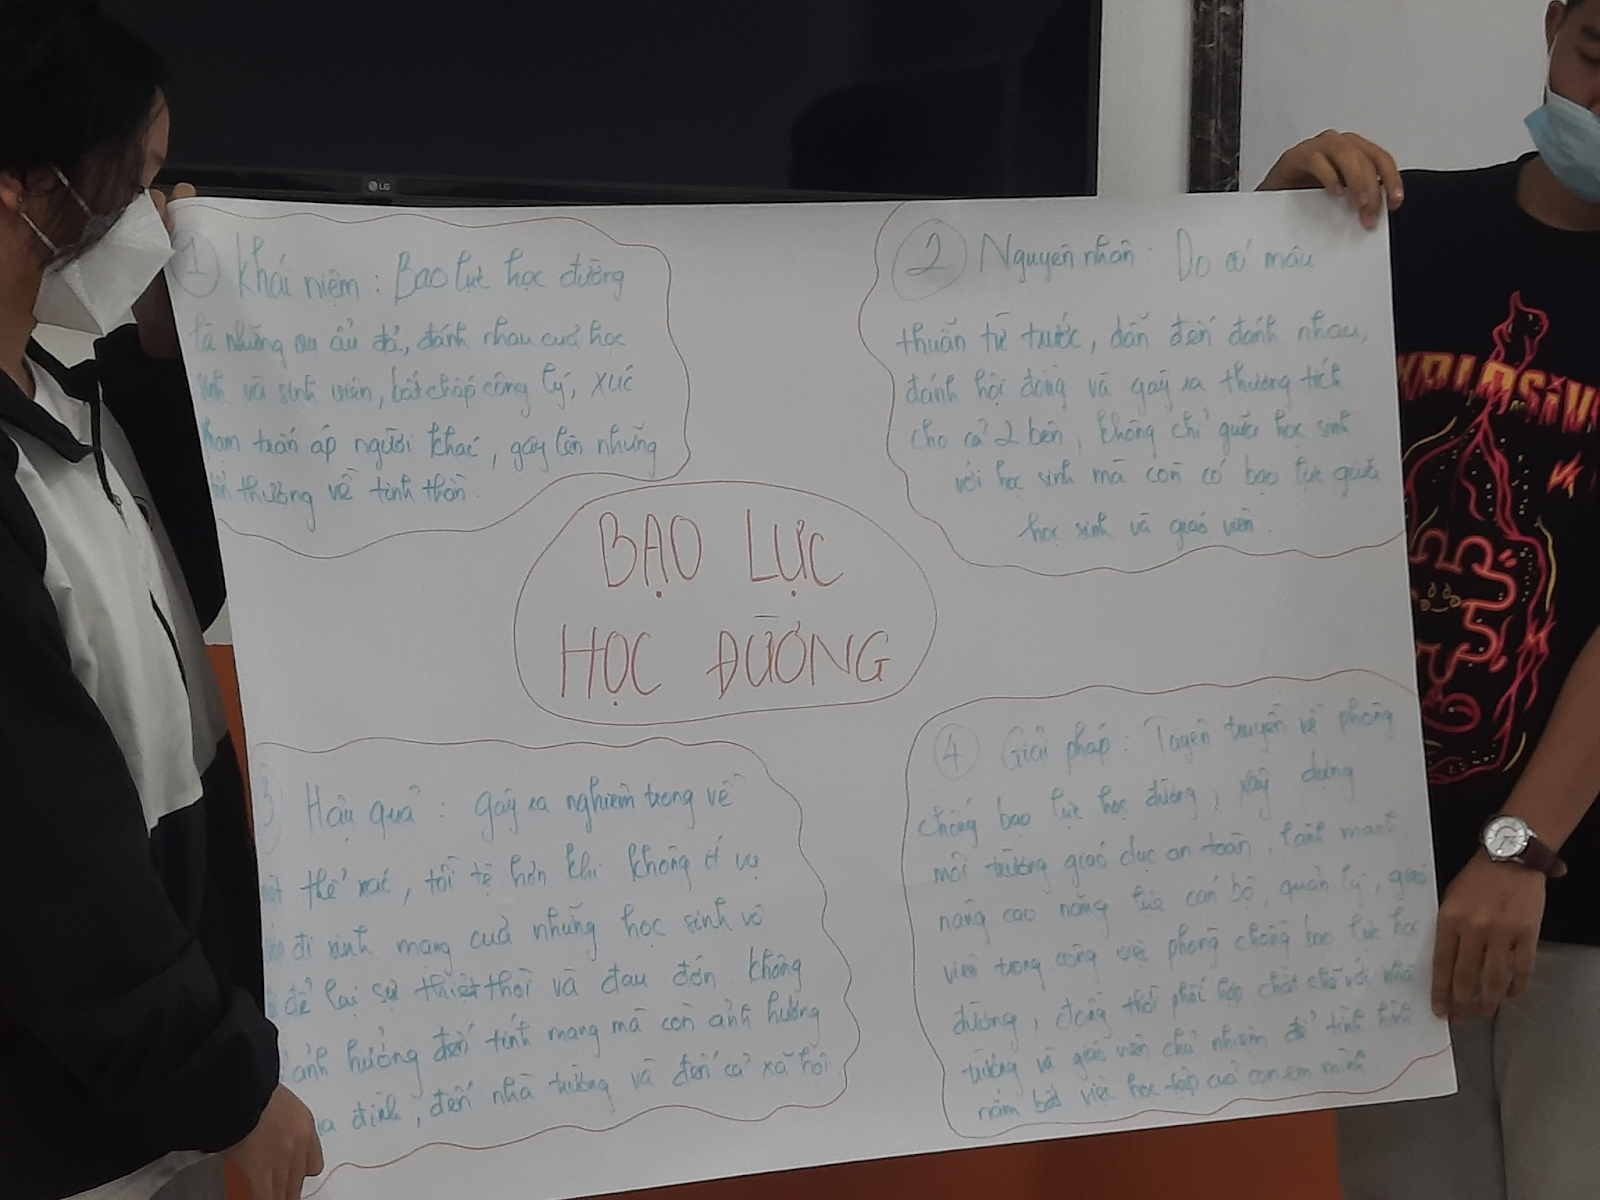 LG
1 Khái niệm : Bạo lực học đường
là những vụ ẩu đả, đánh nhau của học
sinh và sinh viên, bất chấp công lý, xúc
phạm trấn áp người khác, gây lên những
tổn thương về tinh thần.
2 Nguyên nhân : Do có mâu
thuẫn từ trước, dẫn đến đánh nhau,
đánh hội đồng và gây ra thương tích
cho cả 2 bên, không chỉ giữa học sinh
với học sinh mà còn có bạo lực giữa
học sinh và giáo viên.
EXPLOSIVE
BẠO LỰC
HỌC ĐƯỜNG
3 Hậu quả : gây ra nghiêm trọng về
thể xác, tồi tệ hơn khi không ít vụ
đi sinh mạng của những học sinh vô
để lại sự thiệt thòi và đau đớn không
ảnh hưởng đến tính mạng mà còn ảnh hưởng
gia đình, đến nhà trường và đến cả xã hội
4 Giải pháp : Tuyên truyền về phòng
chống bạo lực học đường, xây dựng
môi trường giáo dục an toàn, lành mạnh,
nâng cao năng lực cán bộ, quản lý, giáo
viên trong công việc phòng chống bạo lực học
đường, đồng thời phối hợp chặt chẽ với nhà
trường và giáo viên chủ nhiệm để tình hình
nắm bắt việc học tập của con em mình